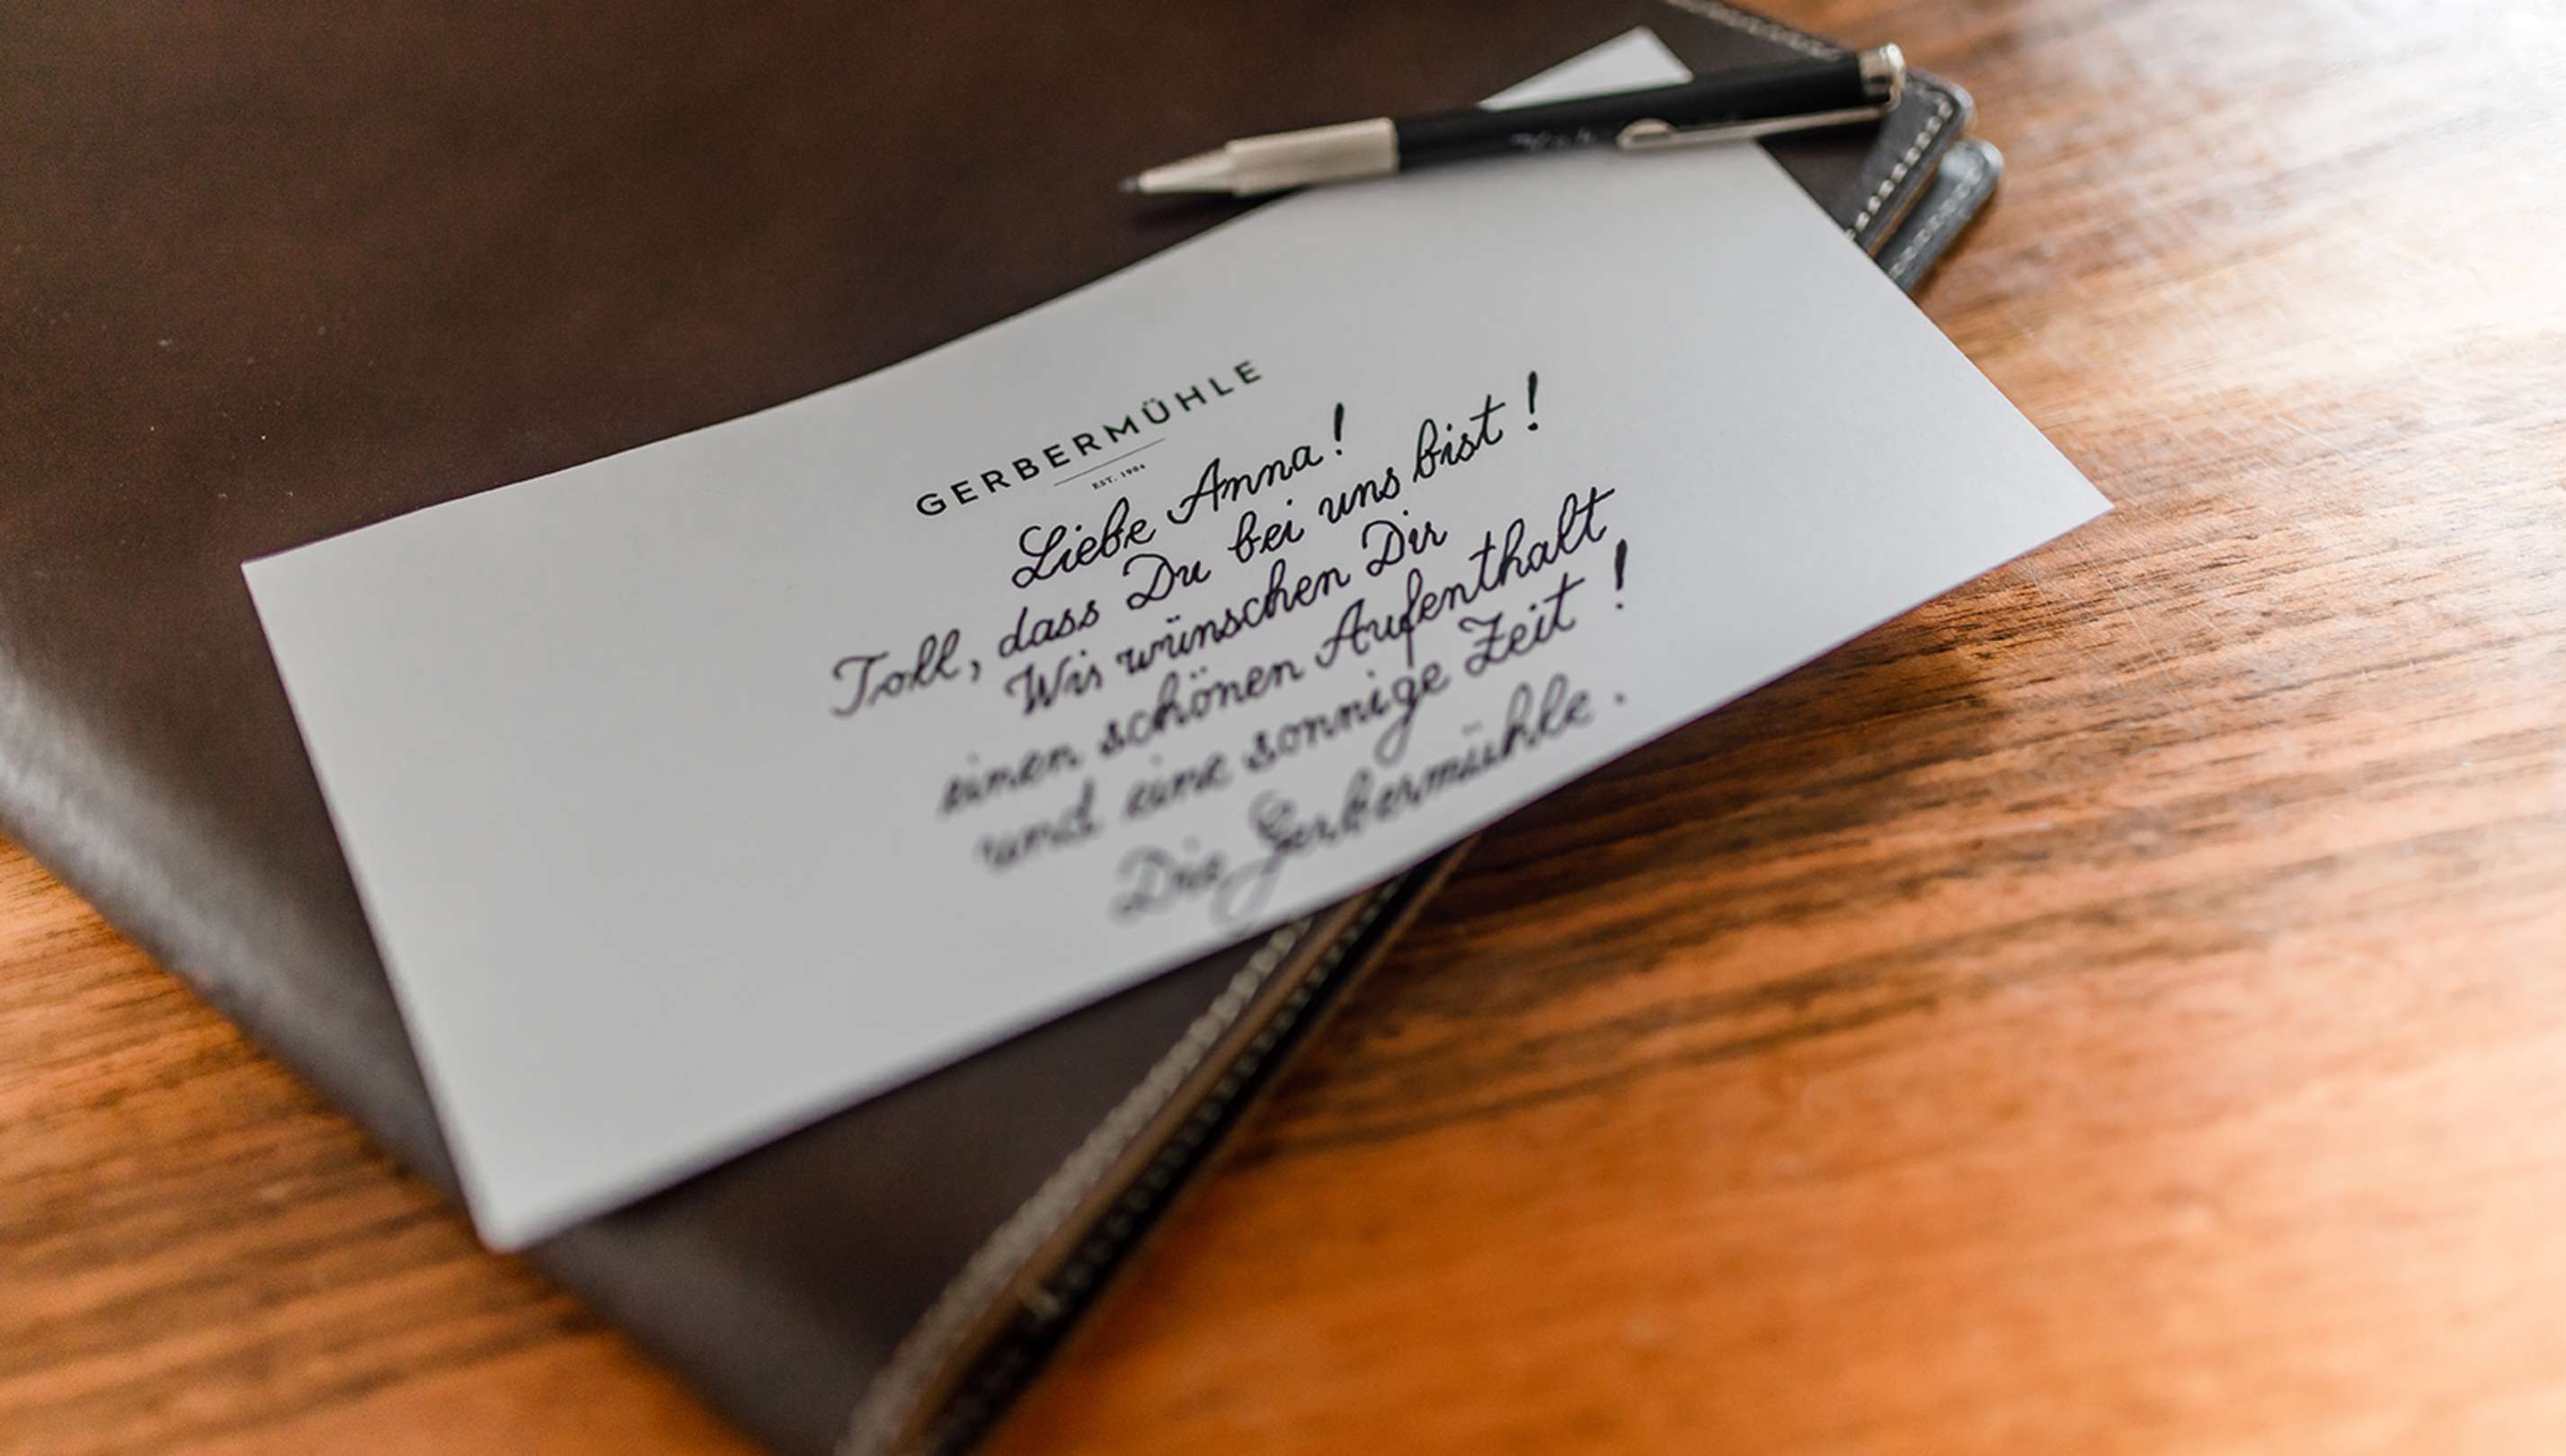 GERBERMÜHLE
EST. 1904
Liebe Anna!
Toll, dass Du bei uns bist!
Wir wünschen Dir
einen schönen Aufenthalt
und eine sonnige Zeit!
Die Gerbermühle.